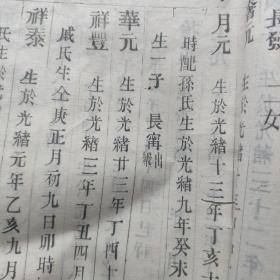 長發 女
月元 生於光緒十三年丁亥
時配孫氏生於光緒九年癸未
生一子 長寗
華元 生於光緒廿三年丁酉十
祥豐 生於光緒三年丁丑四月
戚氏生仝庚正月初九日卯時
祥泰 生於光緒元年乙亥九月
氏生於光緒